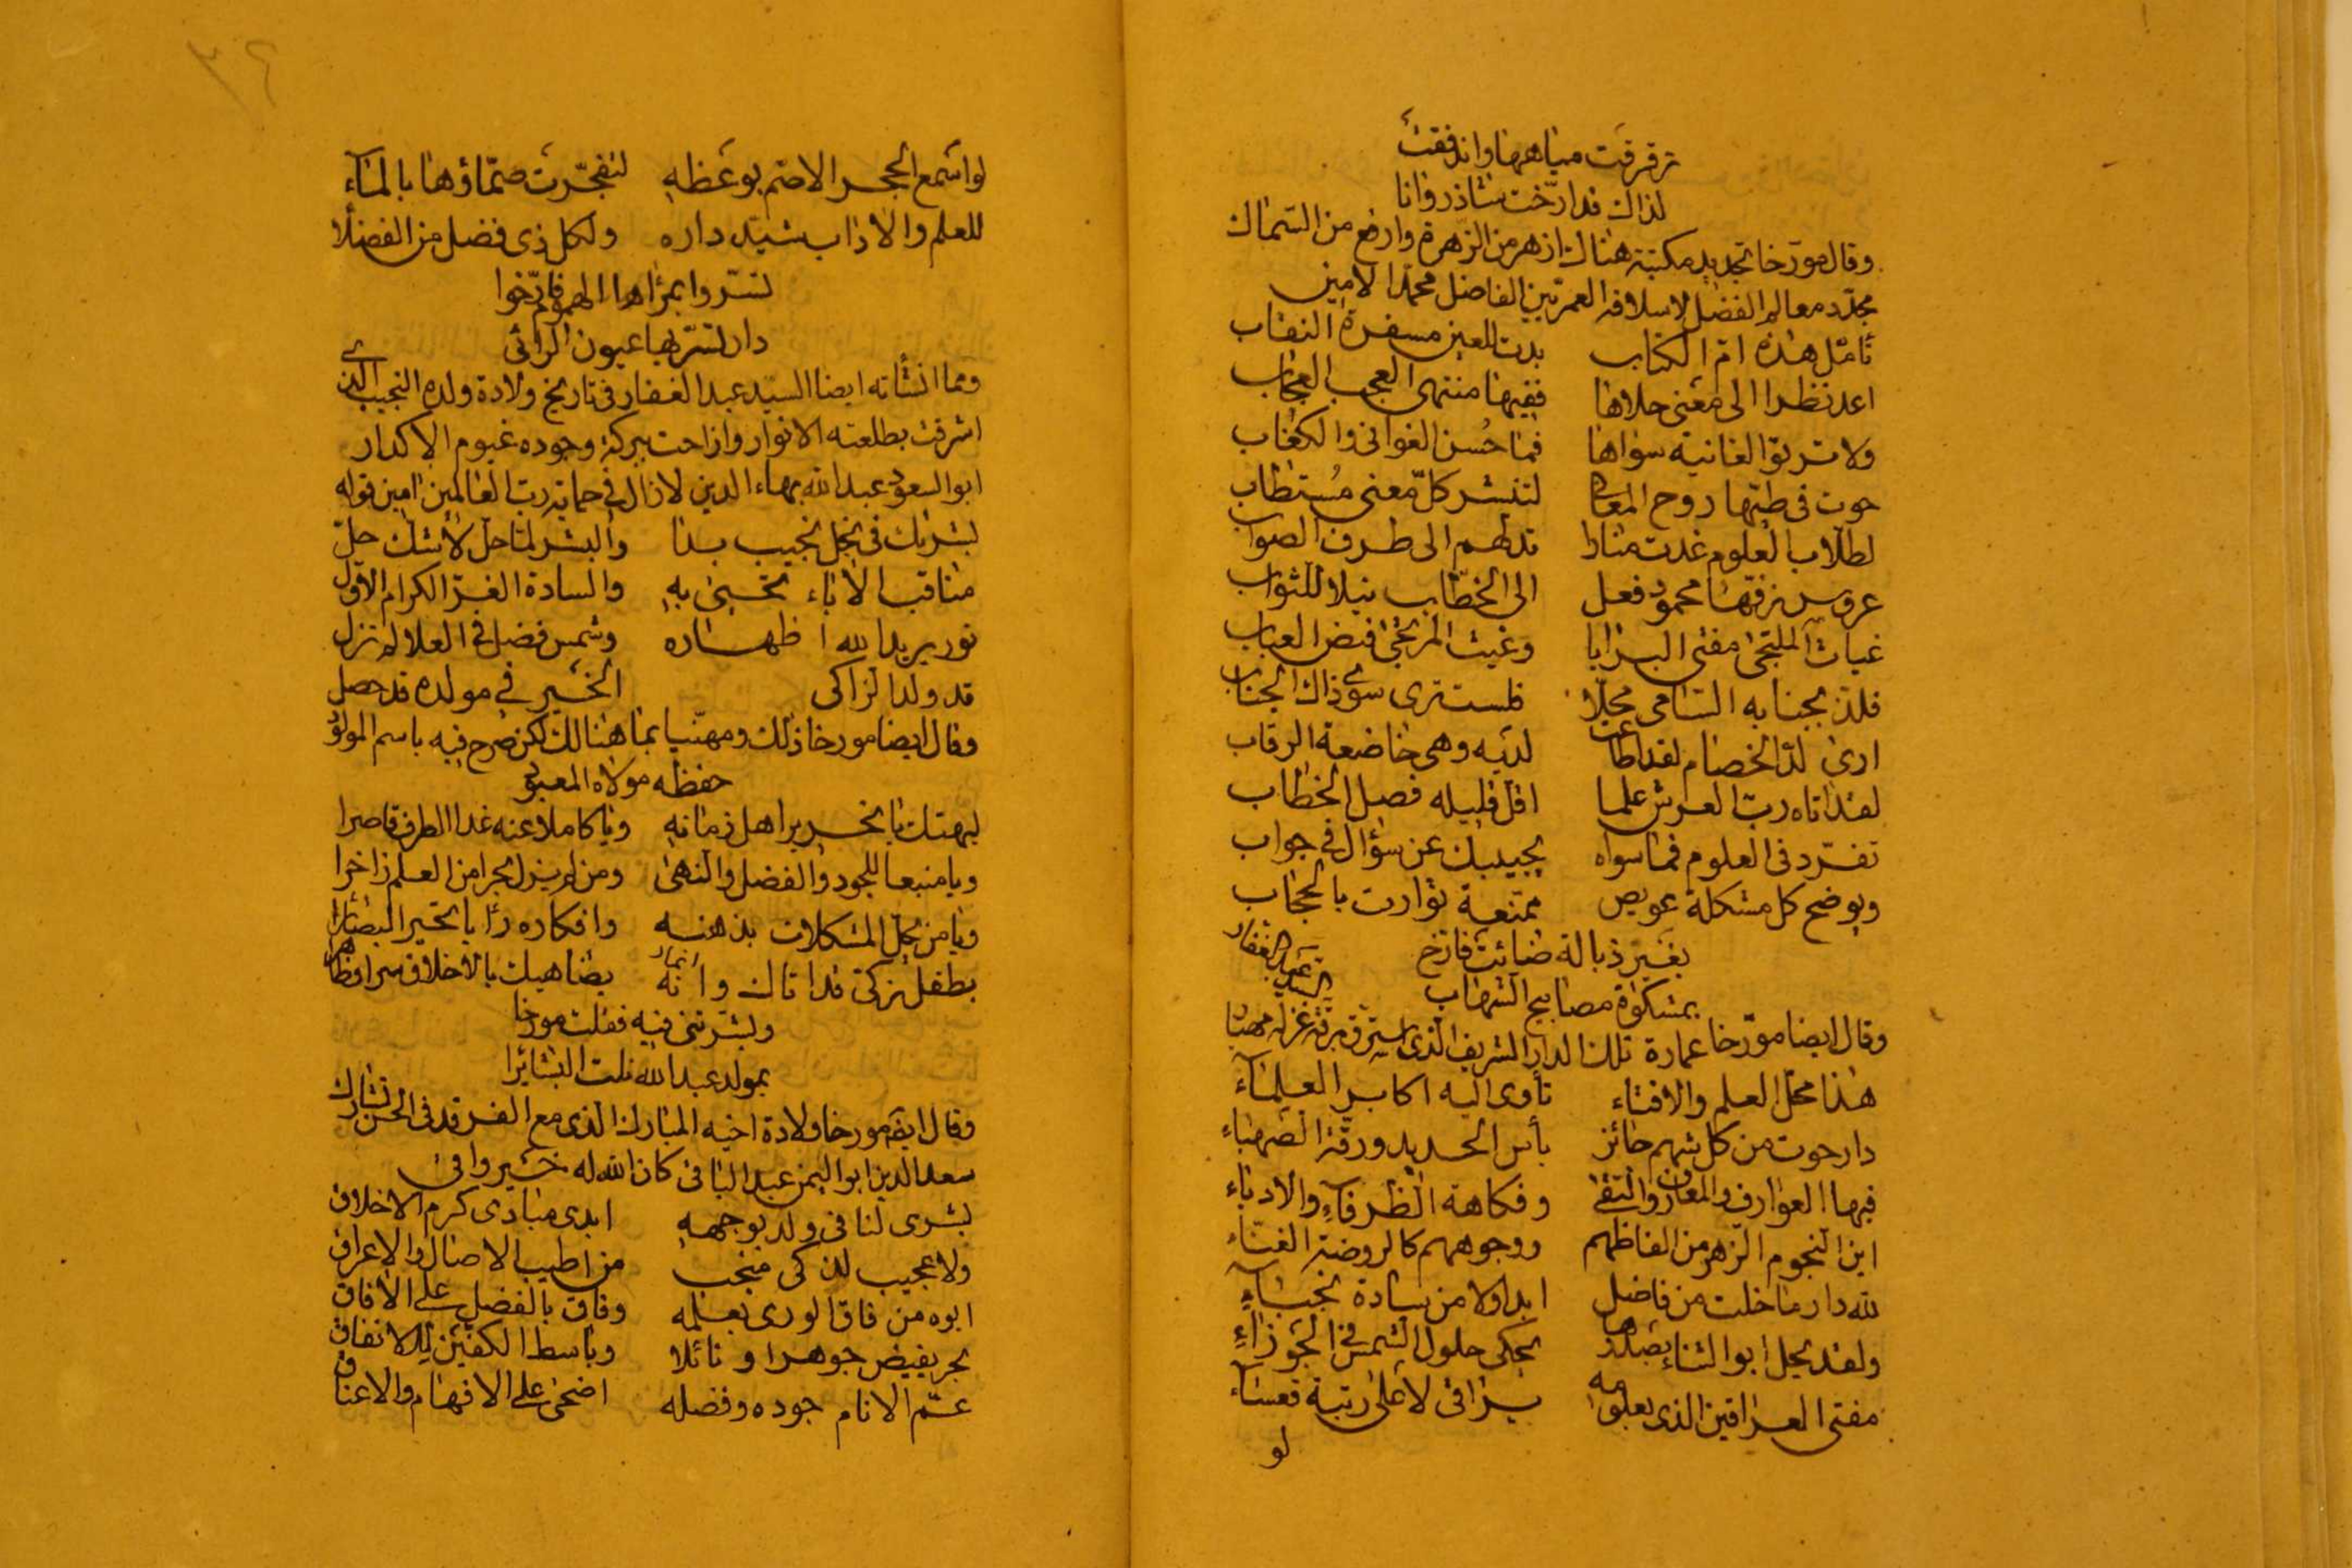 ترقرقت مياهها واندفقت
لذاك قد ارّخت شاذروانا
وقال مورخا تجديد مكتبة هناك ازهر من الزهرة وارفع من السماك
مجدّد معالم الفضل لاسلافه العمريين الفاضل محمد الامين
تأمّل هذه امّ الكتاب بدت للعين مسفرة النقاب
اعد نظرا الى معنى حلاها ففيها منتهى العجب العجاب
ولا ترنو لغانية سواها فما حُسن الغوانى والكعاب
حوت فى طيّها روح المعانى لتنشر كلّ معنى مُستطاب
لطلّاب العلوم غدت منارا تدلهم الى طرف الصواب
عروس زفّها محمود فعل الى الخطّاب نيلا للثواب
غياث الملتجى مفتى البرايا وغيث المرتجى فيض العباب
فلذ بجنابه السامى مجلّا فلست ترى سوى ذاك الجناب
ارى لدّ الخصام لقد اطاعت لديه وهى خاضعة الرقاب
لقد اتاه ربّ العرش علما اقلّ قليله فصل الخطاب
تفرّد فى العلوم فما سواه يجيبك عن سؤال فى جواب
ويوضح كل مشكلة عويص ممنعة توارت بالحجاب
بغير ذبالة ضائت فارّخ
بمشكوة مصابيح الشهاب
السيد عبد الغفار
وقال ايضا مورّخا عمارة تلك الدار الشريف الذى استرق برقة غزله مهيا
هذا محلّ العلم والافتاء تأوى اليه اكابر العلماء
دار حوت من كل شهم حائز بأس الحديد ورقّة الصهباء
فيها العوارف والمعارف والتقى وفكاهة الظرفاء والادباء
اين النجوم الزهر من الفاظهم ووجوههم كالروضة الغنّاء
لله دار ما خلت من فاضل ابدا ولا من سادة نجباء
ولقد يحل ابو الثناء بصدرها يحكى حلول الشمس فى الجوزاء
مفتى العراقين الذى بعلومه يرافى لاعلى رتبة قعساء
لو
لو اسمع الحجر الاصمّ بوعظه لتفجّرت صمّاؤها بالماء
للعلم والاداب شيّد داره ولكل ذى فضل من الفضلا
لتسروا بمرأها الهموم فارّخوا
دار تسرّ بها عيون الرائى
ومما انشأته ايضا السيد عبد الغفار فى تاريخ ولادة ولده النجيب الذى
اشرقت بطلعته الانوار وازاحت ببركة وجوده غيوم الاكدار
ابو السعود عبد الله بهاء الدين لازال فى حماية رب العالمين امين قوله
بشريك فى نجل نجيب بدا والبشر لمّا حلّ لا شك حلّ
مناقب الاباء تحيى به والسادة الغرّ الكرام الاول
نور يريد الله اظهاره وشمس فضل فى العلا لم تزل
قد ولد الزاكى الخير فى مولده قد حصل
وقال ايضا مورخا ذلك ومهنّيا بما هنالك لكن صرح فيه باسم المولود
حفظه مولاه المعبود
ليهنك يا نحرير اهل زمانه ويا كاملا عنه غدا الطرف قاصرا
ويا منبعا للجود والفضل والنهى ومن لم يزل بحرا من العلم زاخرا
ويا من يحل المشكلات بذهنه وافكاره رأيا تحير البصائرا
بطفل زكىّ قد اتاك وانه يضاهيك بالاخلاق سرا وظاهرا
وبشرتنى فيه فقلت مورخا
بمولد عبد الله نلت البشائرا
وقال ايضا مورخا ولادة اخيه المبارك الذى مع الفرقد فى الحسن تشارك
سعد الدين ابو اليمن عبد الباقى كان الله له خير واقى
بشرى لنا فى ولد بوجهه ابدى مبادى كرم الاخلاق
ولا عجيب لذكى منجب من اطيب الاصال والاعراق
ابوه من فاق الورى بعلمه وفاق بالفضل على الافاق
بحر يفيض جوهرا ونائلا وباسط الكفين للانفاق
عمّ الانام جوده وفضله اضحى على الافهام والاعناق